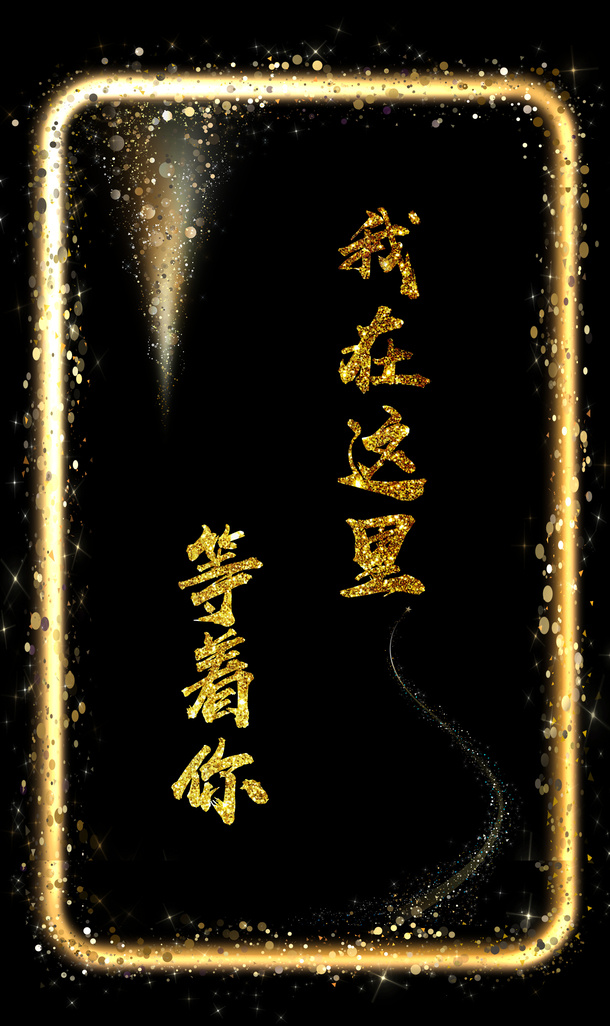 我在这里
等着你